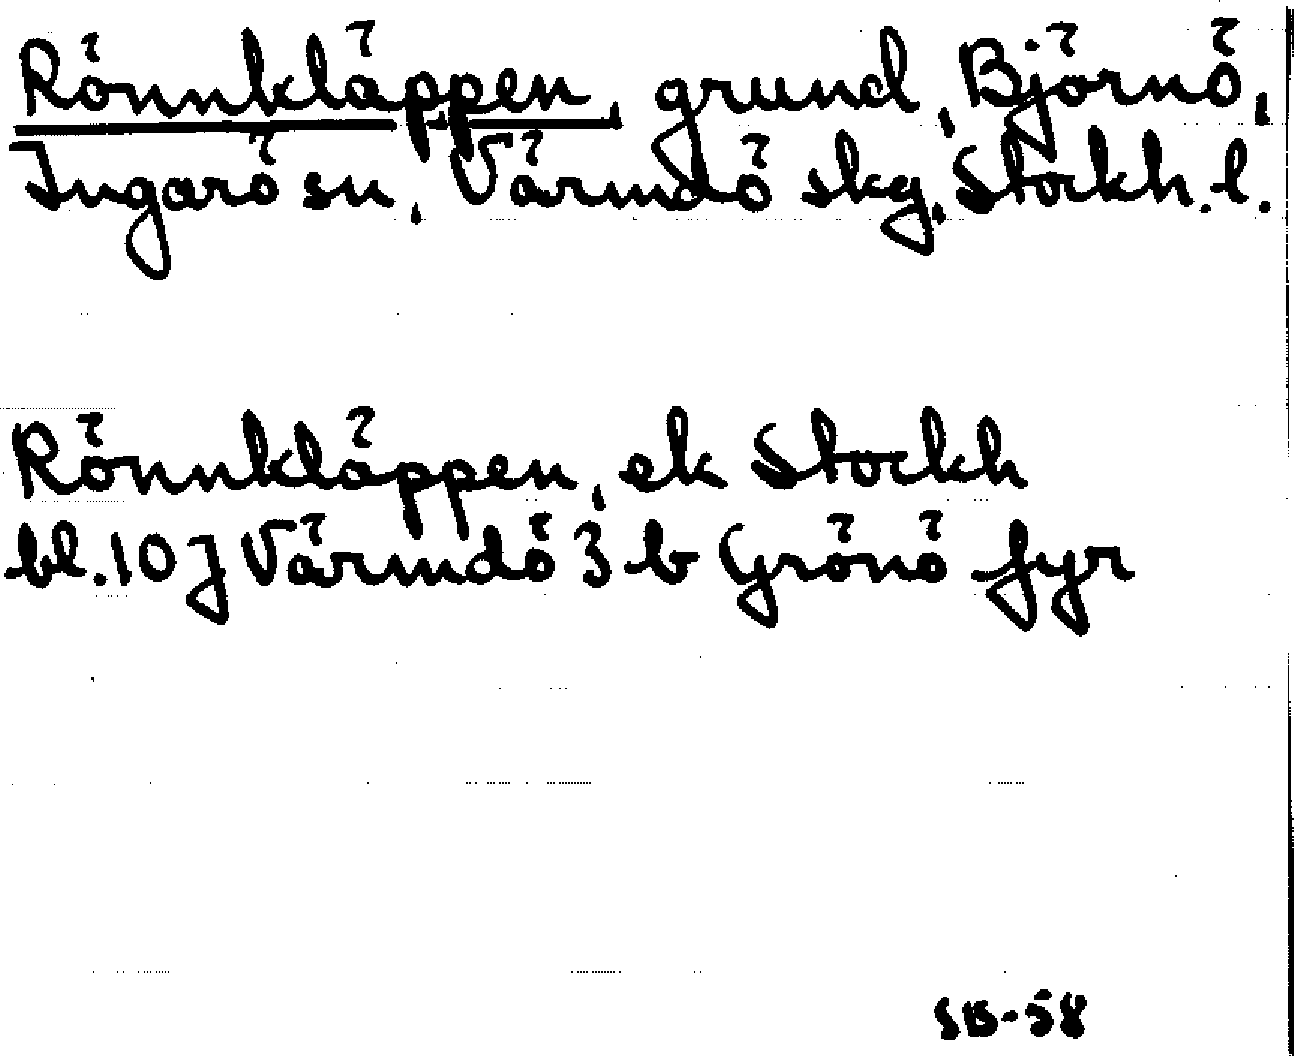 Rönnkläppen, grund, Björnö,
Ingarö sn, Värmdö skg, Stockh. l.
Rönnkläppen, ek Stockh
bl. 10 J Värmdö 3 b Grönö fyr
SB-58